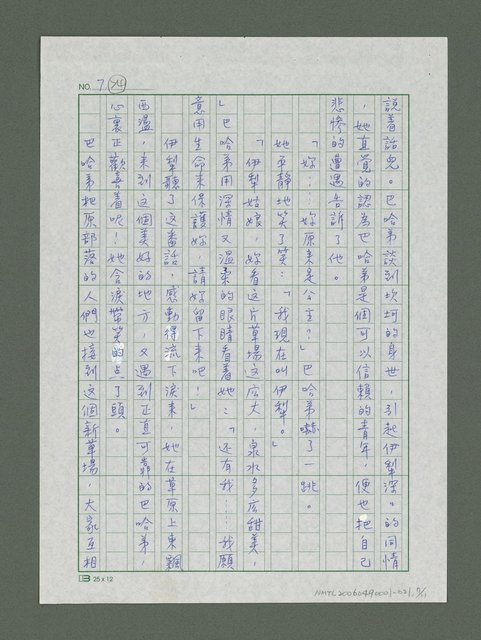 NO. 7 24
說着話兒。巴哈弟談到坎坷的身世，引起伊犁深深的同情
，她直覺的認為巴哈弟是個可以信賴的青年，便也把自己
悲慘的遭遇告訴了他。
「妳……妳原來是公主？」巴哈弟嚇了一跳。
她平靜地笑了笑：「我現在叫伊犁。」
「伊犁姑娘，妳看這片草場這広大，泉水多広甜美，
」巴哈弟用深情又溫柔的眼睛看着她：「還有我……我願
意用生命來保護妳，請妳留下來吧！」
伊犁聽了這番話，感動得流下淚來，她在草原上東飄
西盪，來到這個美好的地方，又遇到正直可靠的巴哈弟，
心裏正歡喜着呢！她含淚帶笑的点了頭。
巴哈弟把原部落的人們也接到這個新草場，大家互相
25x12
NMTL20060490001-021